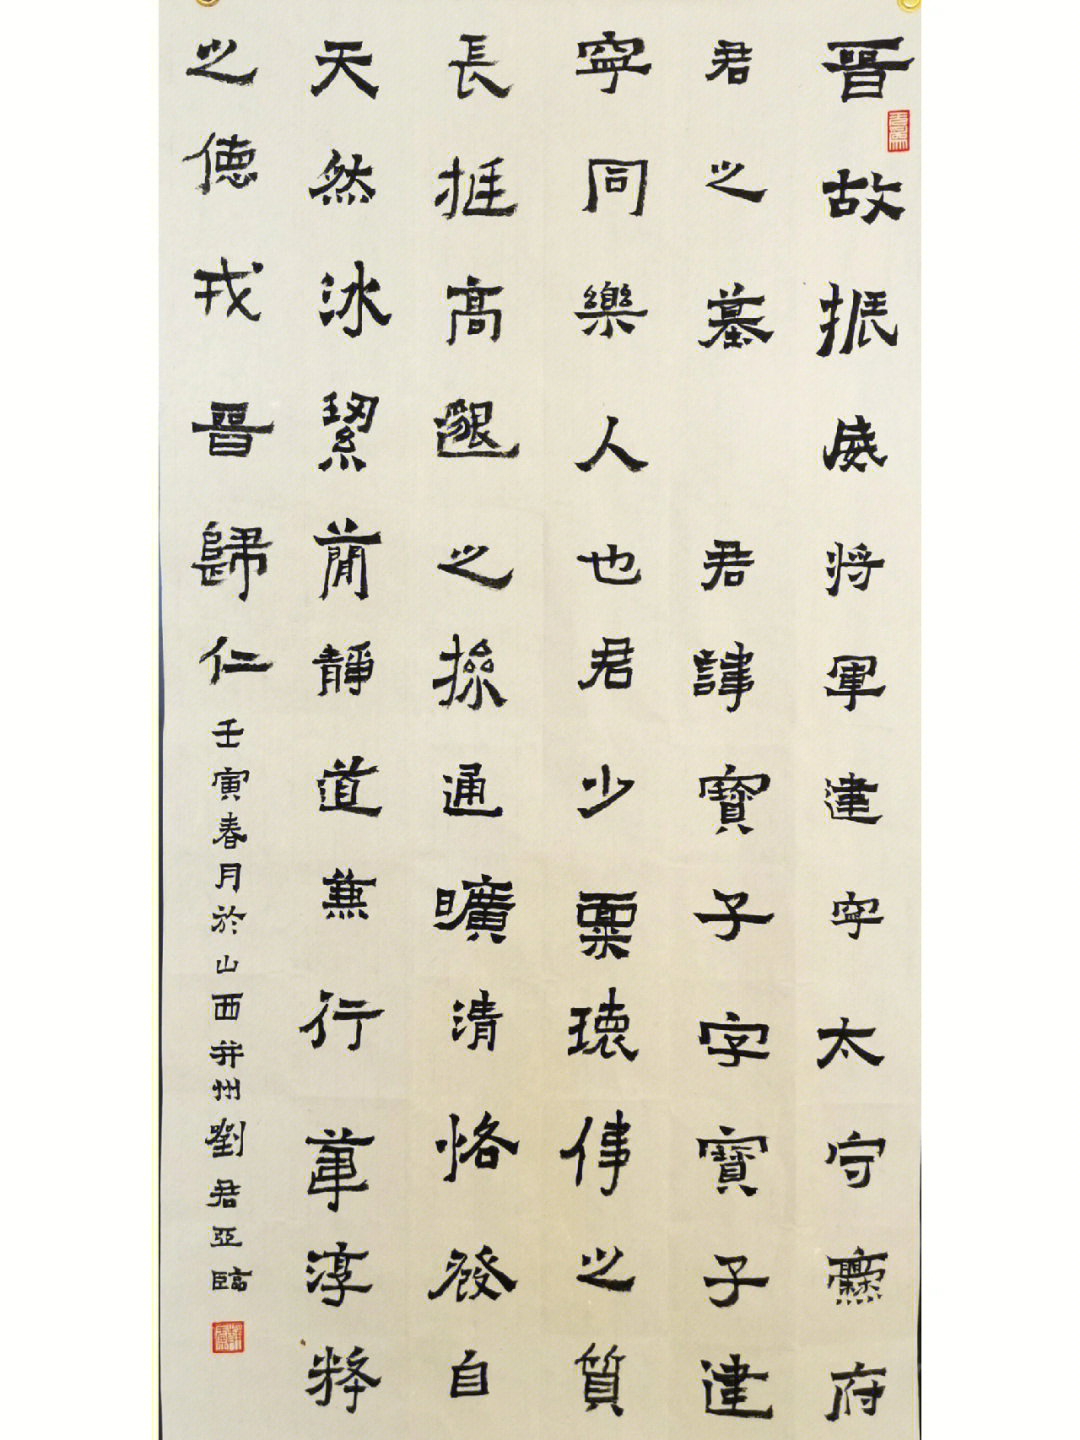 晉故振威將軍建寧太守爨府
君之墓 君諱寶子字寶子建
寧同樂人也君少稟瓌偉之質
長挺高邈之操通曠清恪發自
天然冰絜蕑靜道兼行葦淳粹
之德戎晉歸仁
壬寅春月於山西并州劉君亞臨